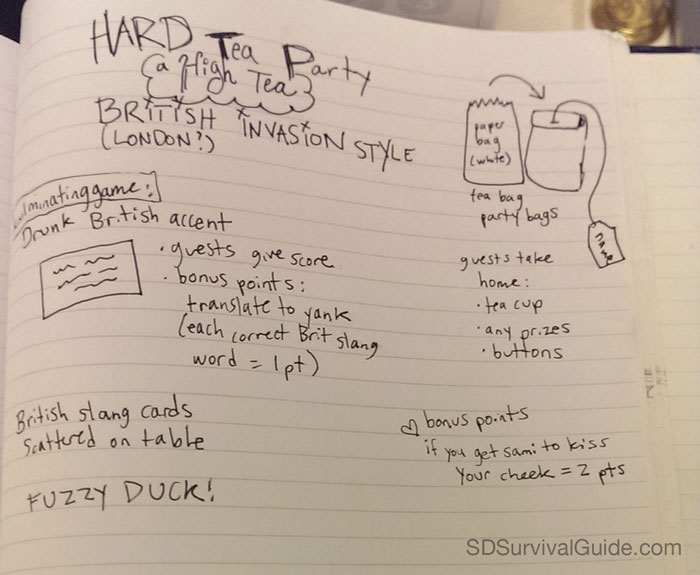 HARD Tea Party
(a High Tea)
BRITISH INVASION STYLE
(LONDON?)
paper
bag
(white)
tea bag
party bags
name
Culminating game:
Drunk British accent
· guests give score
· bonus points:
translate to yank
(each correct Brit slang
word = 1pt)
guests take
home:
· tea cup
· any prizes
· buttons
British slang cards
scattered on table
bonus points
if you get sami to kiss
your cheek = 2 pts
FUZZY DUCK!
SDSurvivalGuide.com